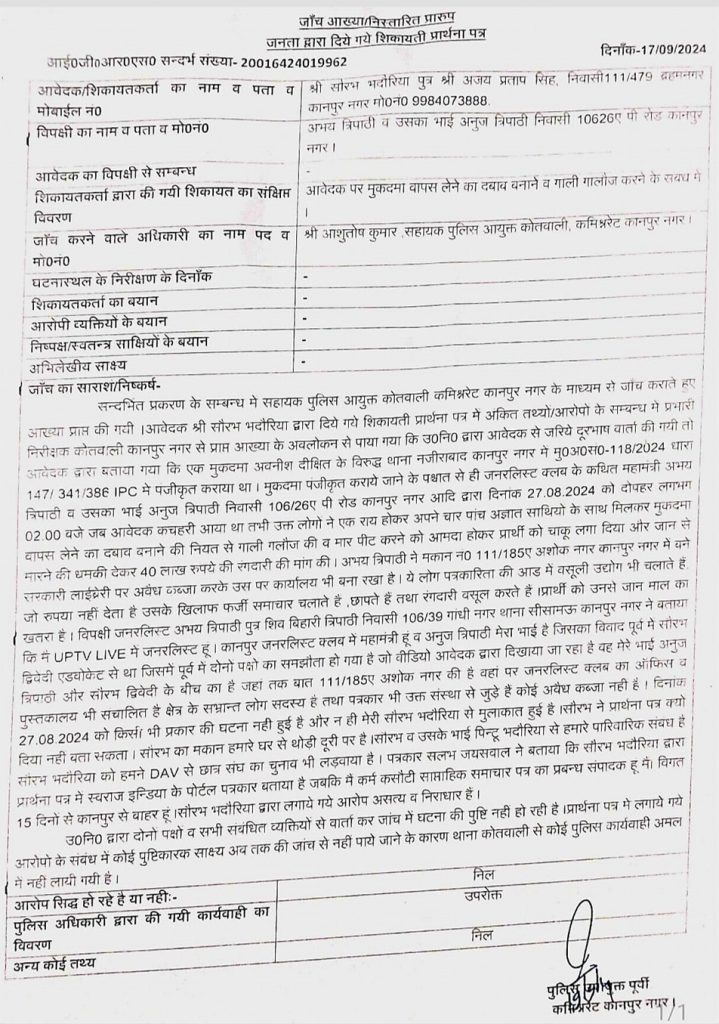 जाँच आख्या/निस्तारित प्रारुप
जनता द्वारा दिये गये शिकायती प्रार्थना पत्र
आई0जी0आर0एस0 सन्दर्भ संख्या- 20016424019962
दिनाँक-17/09/2024
आवेदक/शिकायतकर्ता का नाम व पता व मोबाईल नं0
श्री सौरभ भदौरिया पुत्र श्री अजय प्रताप सिंह, निवासी111/479 ब्रहमनगर
कानपुर नगर मो0नं0 9984073888.
विपक्षी का नाम व पता व मो0नं0
अभय त्रिपाठी व उसका भाई अनुज त्रिपाठी निवासी 10626ए पी रोड कानपुर
नगर ।
आवेदक का विपक्षी से सम्बन्ध
-
शिकायतकर्ता द्वारा की गयी शिकायत का संक्षिप्त
विवरण
आवेदक पर मुकदमा वापस लेने का दबाव बनाने व गाली गालौज करने के सबध मे
।
जाँच करने वाले अधिकारी का नाम पद व
मो0नं0
श्री आशुतोष कुमार ,सहायक पुलिस आयुक्त कोतवाली, कमिश्नरेट कानपुर नगर ।
घटनास्थल के निरीक्षण के दिनाँक
-
शिकायतकर्ता का बयान
-
आरोपी व्यक्तियों के बयान
-
निष्पक्ष/स्वतन्त्र साक्षियों के बयान
-
अभिलेखीय साक्ष्य
-
जाँच का साराशं/निष्कर्ष-
सन्दर्भित प्रकरण के सम्बन्ध मे सहायक पुलिस आयुक्त कोतवाली कमिश्नरेट कानपुर नगर के माध्यम से जाँच कराते हुए
आख्या प्राप्त की गयी ।आवेदक श्री सौरभ भदौरिया द्वारा दिये गये शिकायती प्रार्थना पत्र में अकित तथ्यो/आरोपो के सम्बन्ध मे प्रभारी
निरीक्षक कोतवाली कानपुर नगर से प्राप्त आख्या के अवलोकन से पाया गया कि उ0नि0 द्वारा आवेदक से जरिये दूरभाष वार्ता की गयी तो
आवेदक द्वारा बताया गया कि एक मुकदमा अवनीश दीक्षित के विरुद्ध थाना नजीराबाद कानपुर नगर में मु0अ0स0-118/2024 धारा
147/ 341/386 IPC मे पंजीकृत कराया था । मुकदमा पंजीकृत कराये जाने के पश्चात से ही जनरलिस्ट क्लब के कथित महामंत्री अभय
त्रिपाठी व उसका भाई अनुज त्रिपाठी निवासी 106/26ए पी रोड कानपुर नगर आदि द्वारा दिनांक 27.08.2024 को दोपहर लगभग
02.00 वजे जब आवेदक कचहरी आया था तभी उक्त लोगो ने एक राय होकर अपने चार पांच अज्ञात साथियो के साथ मिलकर मुकदमा
वापस लेने का दबाव बनाने की नियत से गाली गलौज की व मार पीट करने को आमदा होकर प्रार्थी को चाकू लगा दिया और जान से
मारने की धमकी देकर 40 लाख रुपये की रंगदारी की मांग की । अभय त्रिपाठी ने मकान न0 111/185ए अशोक नगर कानपुर नगर में वने
सरकारी लाईब्रेरी पर अवैध कब्जा करके उस पर कार्यालय भी बना रखा है । ये लोग पत्रकारिता की आड में वसूली उद्योग भी चलाते हैं.
जो रुपया नहीं देता है उसके खिलाफ फर्जी समाचार चलाते है ,छापते हैं तथा रंगदारी वसूल करते है ।प्रार्थी को उनसे जान माल का
खतरा है । विपक्षी जनरलिस्ट अभय त्रिपाठी पुत्र शिव बिहारी त्रिपाठी निवासी 106/39 गांधी नगर थाना सीसामऊ कानपुर नगर ने बताया
कि मै UPTV LIVE में जनरलिस्ट हू । कानपुर जनरलिस्ट क्लब में महामंत्री हूं व अनुज त्रिपाठी मेरा भाई है जिसका विवाद पूर्व में सौरभ
द्विवेदी एडवोकेट से था जिसमें पूर्व में दोनो पक्षो का समझौता हो गया है जो वीडियो आवेदक द्वारा दिखाया जा रहा है वह मेरे भाई अनुज
त्रिपाठी और सौरभ द्विवेदी के बीच का है जहां तक बात 111/185ए अशोक नगर की है वहां पर जनरलिस्ट क्लब का ऑफिस व
पुस्तकालय भी सचालित है क्षेत्र के सभ्रान्त लोग सदस्य है तथा पत्रकार भी उक्त संस्था से जुड़े हैं कोई अवैध कब्जा नही है । दिनांक
27.08.2024 को किसी भी प्रकार की घटना नही हुई है और न ही मेरी सौरभ भदौरिया से मुलाकात हुई है ।सौरभ ने प्रार्थना पत्र क्यो
दिया नही बता सकता । सौरभ का मकान हमारे घर से थोड़ी दूरी पर है ।सौरभ व उसके भाई पिन्टू भदौरिया से हमारे पारिवारिक संबध है
सौरभ भदौरिया को हमने DAV से छात्र संघ का चुनाव भी लड़वाया है । पत्रकार सलभ जयसवाल ने बताया कि सौरभ भदौरिया द्वारा
प्रार्थना पत्र में स्वराज इन्डिया के पोर्टल पत्रकार बताया है जबकि मैं कर्म कसौटी साप्ताहिक समाचार पत्र का प्रबन्ध संपादक हू मै। विगत
15 दिनों से कानपुर से बाहर हूं ।सौरभ भदौरिया द्वारा लगाये गये आरोप असत्य व निराधार हैं ।
उ0नि0 द्वारा दोनो पक्षों व सभी संबंधित व्यक्तियों से वार्ता कर जांच में घटना की पुष्टि नही हो रही है ।प्रार्थना पत्र मे लगाये गये
आरोपो के संबंध में कोई पुष्टिकारक साक्ष्य अब तक की जांच से नहीं पाये जाने के कारण थाना कोतवाली से कोई पुलिस कार्यवाही अमल
मे नही लायी गयी है ।
आरोप सिद्ध हो रहे है या नही:-
निल
पुलिस अधिकारी द्वारा की गयी कार्यवाही का
विवरण
उपरोक्त
अन्य कोई तथ्य
निल
पुलिस आयुक्त पूर्वी
कमिश्नरेट कानपुर नगर ।
1/1